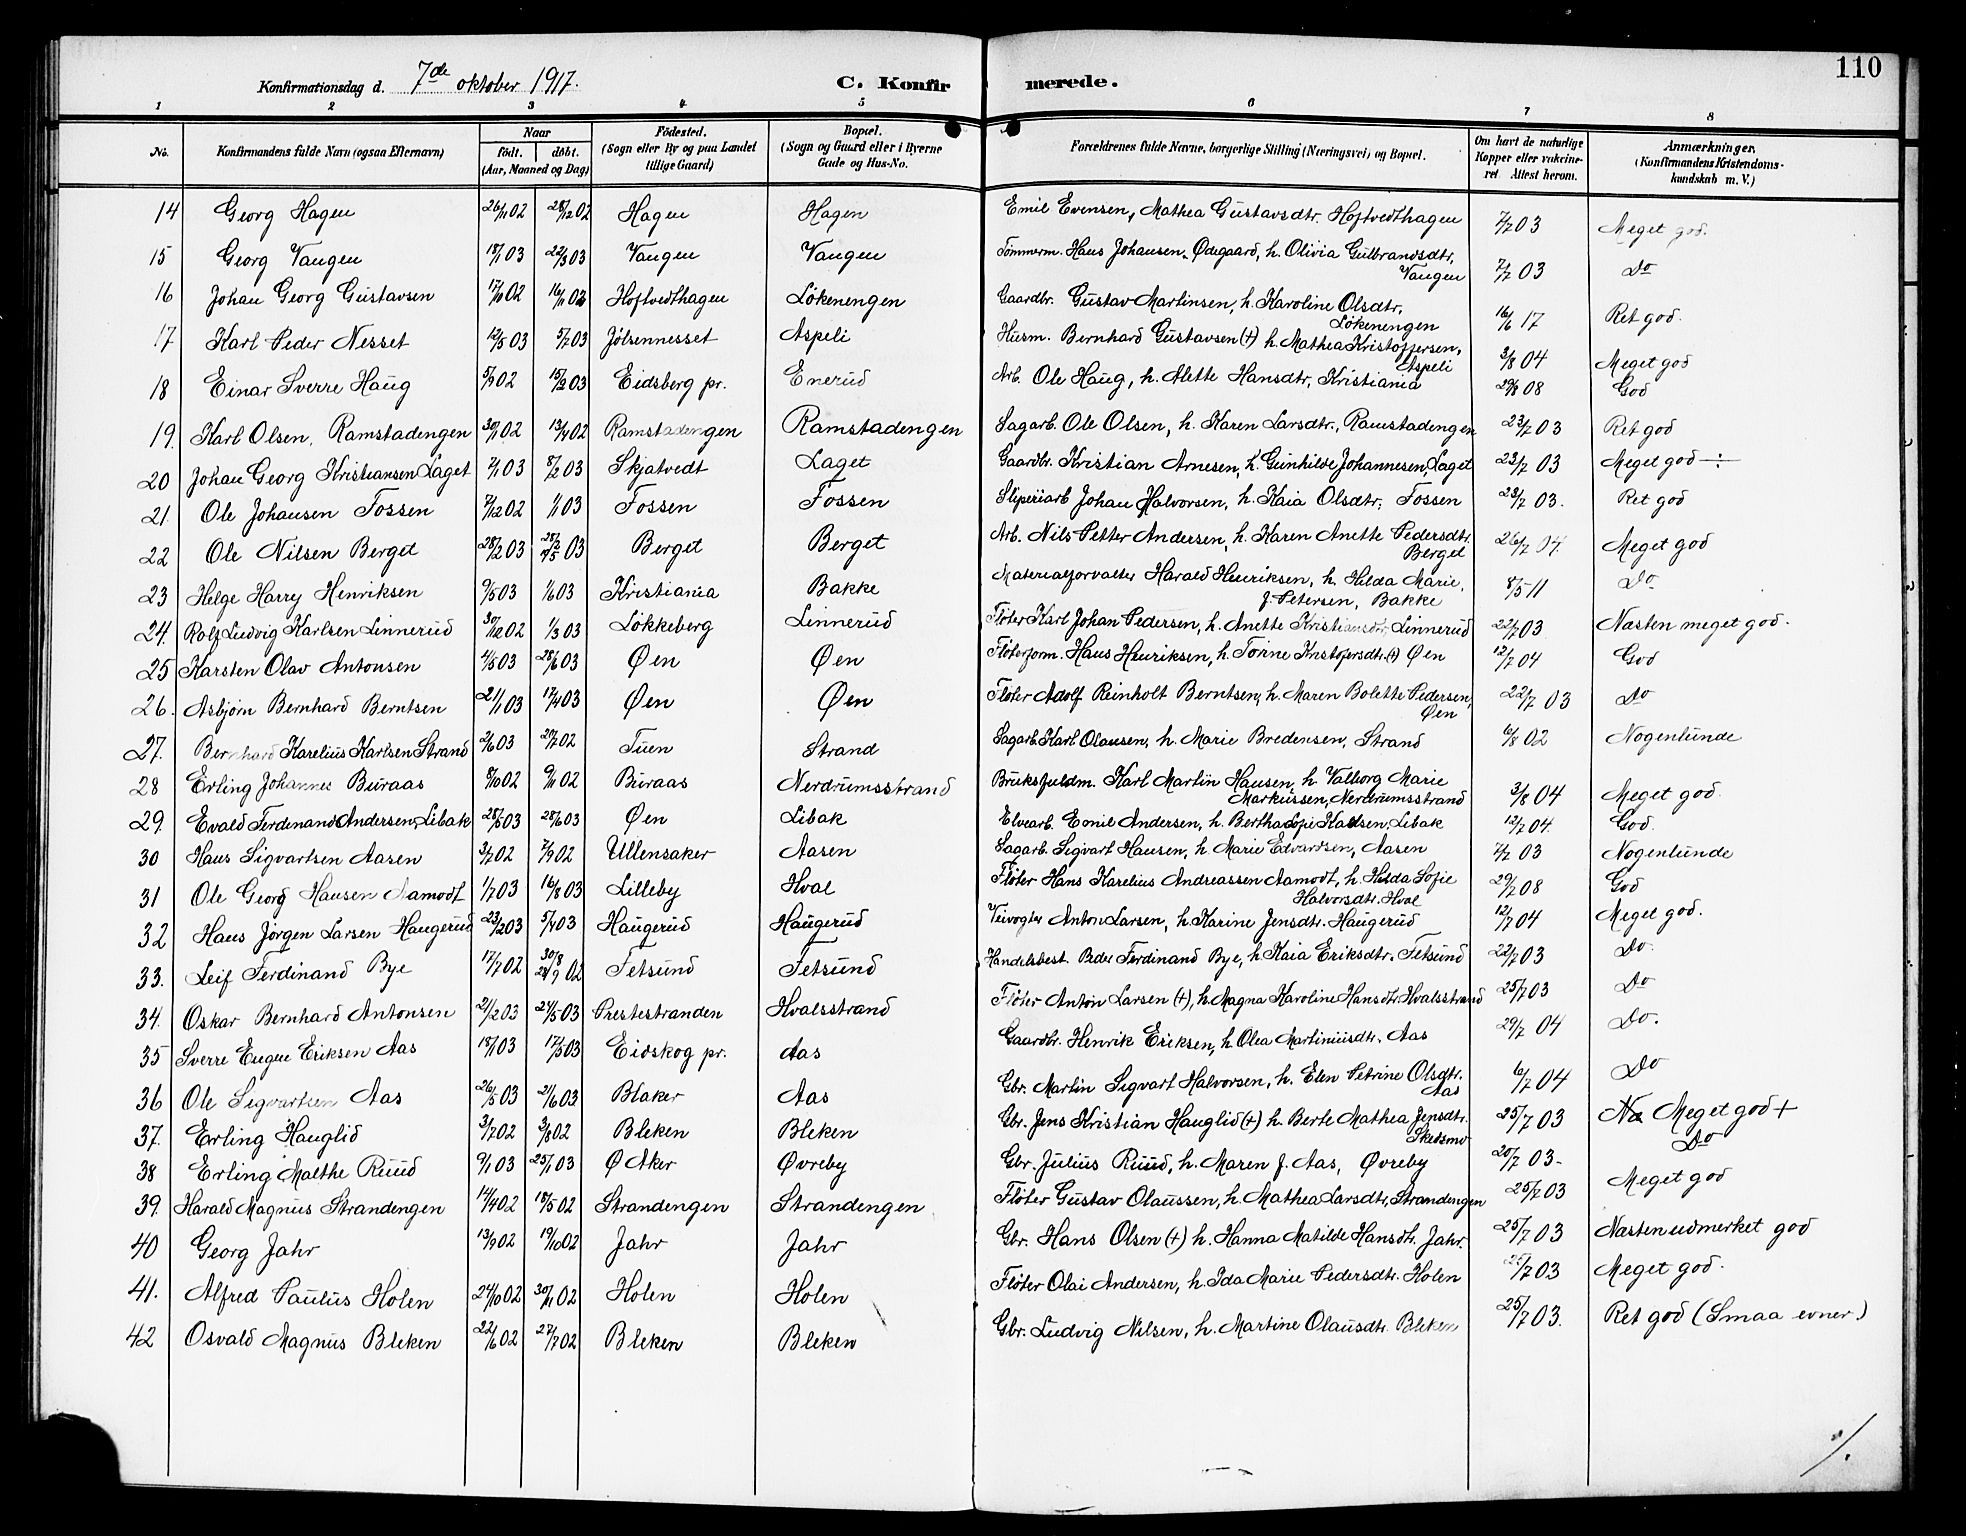 110
Konfirmationsdag d. 7de oktober 1917. C. Konfirmerede.
1 2 3 4 5 6 7 8
No. Konfirmandens fulde Navn (ogsaa Efternavn) Naar født. døbt. (Aar, Maaned og Dag) Fødested. (Sogn eller By og paa Landet tillige Gaard) Bopæl. (Sogn og Gaard eller i Byerne Gade og Hus-No. Forældrenes fulde Navne, borgerlige Stilling (Næringsvei) og Bopæl. Om havt de naturlige Kopper eller vakcineret Attest herom. Anmærkninger, (Konfirmandens Kristendomskundskab m. V.)
14 Georg Hagen 26/11 02 28/12 02 Hagen Hagen Emil Evensen, Mathea Gustavsdtr. Hoftvedthagen 7/7 03 Meget god.
15 Georg Vangen 18/1 03 22/3 03 Vangen Vangen Tømmerm. Hans Johansen Ødegaard, h. Olivia Gulbrandsdtr, Vangen 7/7 03 Do
16 Johan Georg Gustavsen 17/10 02 16/11 02 Hoftvedthagen Løkenengen Gaardbr. Gustav Martinsen, h. Karoline Olsdtr, Løkenengen 16/6 17 Ret god.
17 Karl Peder Nesset 12/5 03 5/7 03 Jølsennesset Aspeli Husm. Bernhard Gustavsen (+) h. Mathea Kristoffersen, Aspeli 3/8 04 Meget god
18 Einar Sverre Haug 5/9 02 15/2 03 Eidsberg pr. Enerud Arb. Ole Haug, h. Alette Hansdtr, Kristiania 29/8 08 God
19. Karl Olsen, Ramstadengen 30/1 02 13/4 02 Ramstadengen Ramstadengen Sagarb. Ole Olsen, h. Karen Larsdtr., Ramstadengen 23/7 03 Ret god
20 Johan Georg Kristiansen Laget 7/1 03 8/2 03 Skjatvedt Laget Gaardbr. Kristian Arnesen, h. Gunhilde Johannesen, Laget 23/7 03 Meget god ÷
21. Ole Johansen Fossen 7/12 02 1/1 03 Fossen Fossen Sliperiarb Johan Halvorsen, h. Kaia Olsdtr, Fossen 23/7 03. Ret god
22 Ole Nilsen Berget 28/2 03 28/2 5 03 Berget Berget Arb. Nils Petter Andersen, h. Karen Anette Pedersdtr. Berget 26/7 04. Meget god
23 Helge Harry Henriksen 9/5 03 1/6 03 Kristiania Bakke Materialforvalter Harald Henriksen, h. Hilda Marie, f. Petersen, Bakke 8/5 11 Do
24. Rolf Ludvig Karlsen Linnerud 30/12 02 1/3 03 Løkkeberg Linnerud Fløter Karl Johan Pedersen, h. Anette Kristiansdtr, Linnerud 22/7 03 Nasten meget god.
25 Karsten Olav Antonsen 4/5 03 28/6 03 Øen Øen Fløterform. Hans Henriksen, h. Torine Kristofersdtr. (+) Øen 12/7 04 God
26. Asbjørn Bernhard Berntsen 21/1 03 17/4 03 Øen Øen Fløter Adolf Reinholt Berntsen, h. Maren Bolette Pedersen, Øen 22/7 03 Do
27. Bernhard Karelius Karlsen Strand 2/6 03 20/7 02 Tuen Strand Sagarb. Karl Olausen, h. Marie Bredensen, Strand 6/8 02 Nogenlunde
28 Erling Johannes Buraas 8/10 02 9/11 02 Buraas Nerdrumsstrand Bruksfuldm. Karl Martin Hansen, h. Valborg Marie Markussen, Nerdrumsstrand 3/8 04 Meget god.
29. Evald Ferdinand Andersen, Libak 28/5 03 28/6 03 Øen Libak Elvearb. Emil Andersen, h. Bertha Sofie Karlsen, Libak 12/7 04. God.
30 Hans Sigvartsen Aasen 3/7 02 7/9 02 Ullensaker Aasen Sagarb. Sigvart Hansen, h. Marie Edvardsen, Aasen 7/7 03 Nogenlunde
31 Ole Georg Hansen Aamodt 1/7 03 16/8 03 Lilleby Hval Fløter Hans Karelius Andreassen Aamodt, h. Hilda Sofie Halvorsdtr. Hval 29/7 08 God
32 Hans Jørgen Larsen Haugerud 23/2 03 5/4 03 Haugerud Haugerud Veivogter Anton Larsen, h. Karine Jensdtr. Haugerud 12/7 04 Meget god.
33. Leif Ferdinand Bye 17/7 02 30/8 21/9 02 Fetsund Fetsund Handelsbest. Peder Ferdinand Bye, h. Kaia Eriksdtr. Fetsund 22/7 03 Do.
34. Oskar Bernhard Antonsen 21/2 03 24/5 03 Prestestranden Hvalsstrand Fløter Anton Larsen (+), h. Magna Karoline Hansdtr. Hvalsstrand 25/7 03 Do
35 Sverre Eugen Eriksen Aas 18/1 03 17/5 03 Eidskog pr. Aas Gaardbr. Henrik Eriksen, h. Olea Martiniusdtr. Aas 29/7 04 Do.
36 Ole Sigvartsen Aas 26/5 03 21/6 03 Blaker Aas Gbr. Martin Sigvart Halvorsen, h. Elen Petrine Olsdtr. Aas 6/7 04 Do
37. Erling Hauglid 3/7 02 3/8 02 Bleken Bleken Gbr. Jens Kristian Hauglid (+) h. Berte Mathea Jensdtr. Skedsmo 25/7 03 Na Meget god +
38 Erling Malthe Ruud 9/1 03 25/1 03 Ø Aker Øvreby Gbr. Julius Ruud, h. Maren f. Aas, Øvreby 20/7 03- Do
39. Harald Magnus Strandengen 14/4 02 18/5 02 Strandengen Strandengen Fløter Gustav Olaussen, h. Mathea Larsdtr, Strandengen 25/7 03 Meget god
40 Georg Jahr 13/9 02 19/10 02 Jahr Jahr Gbr. Hans Olsen (+) h. Hanna Matilde Hansdtr. Jahr. 25/7 03 Nasten udmerket god
41. Alfred Paulus Holen 24/10 02 30/11 02 Holen Holen Fløter Olai Andersen, h. Ida Marie Pedersdtr. Holen 25/7 03 Meget god.
42 Osvald Magnus Bleken 22/6 02 27/7 02 Bleken Bleken Gbr. Ludvig Nilsen, h. Martine Olausdtr. Bleken 25/7 03. Ret god (Smaa evner.)